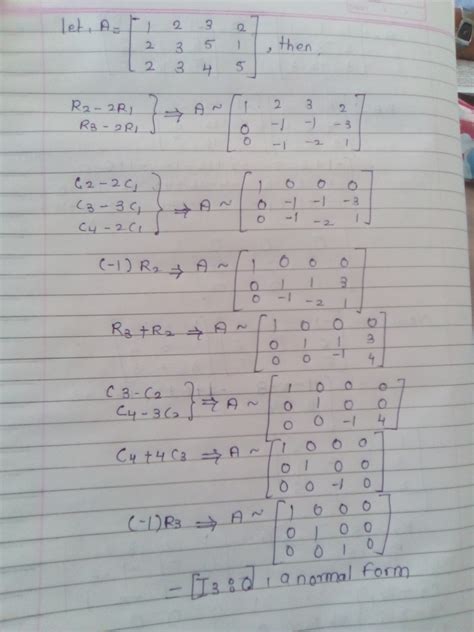 let, A = [ 1 2 3 2
2 3 5 1 , then,
2 3 4 5 ]
R2-2R1
R3-2R1 } ⇒ A ~ [ 1 2 3 2
0 -1 -1 -3
0 -1 -2 1 ]
C2-2C1
C3-3C1
C4-2C1 } ⇒ A ~ [ 1 0 0 0
0 -1 -1 -3
0 -1 -2 1 ]
(-1) R2 ⇒ A ~ [ 1 0 0 0
0 1 1 3
0 -1 -2 1 ]
R3+R2 ⇒ A ~ [ 1 0 0 0
0 1 1 3
0 0 -1 4 ]
C3-C2
C4-3C2 } ⇒ A ~ [ 1 0 0 0
0 1 0 0
0 0 -1 4 ]
C4+4C3 ⇒ A ~ [ 1 0 0 0
0 1 0 0
0 0 -1 0 ]
(-1)R3 ⇒ A ~ [ 1 0 0 0
0 1 0 0
0 0 1 0 ]
- [I3 : 0] , a normal form